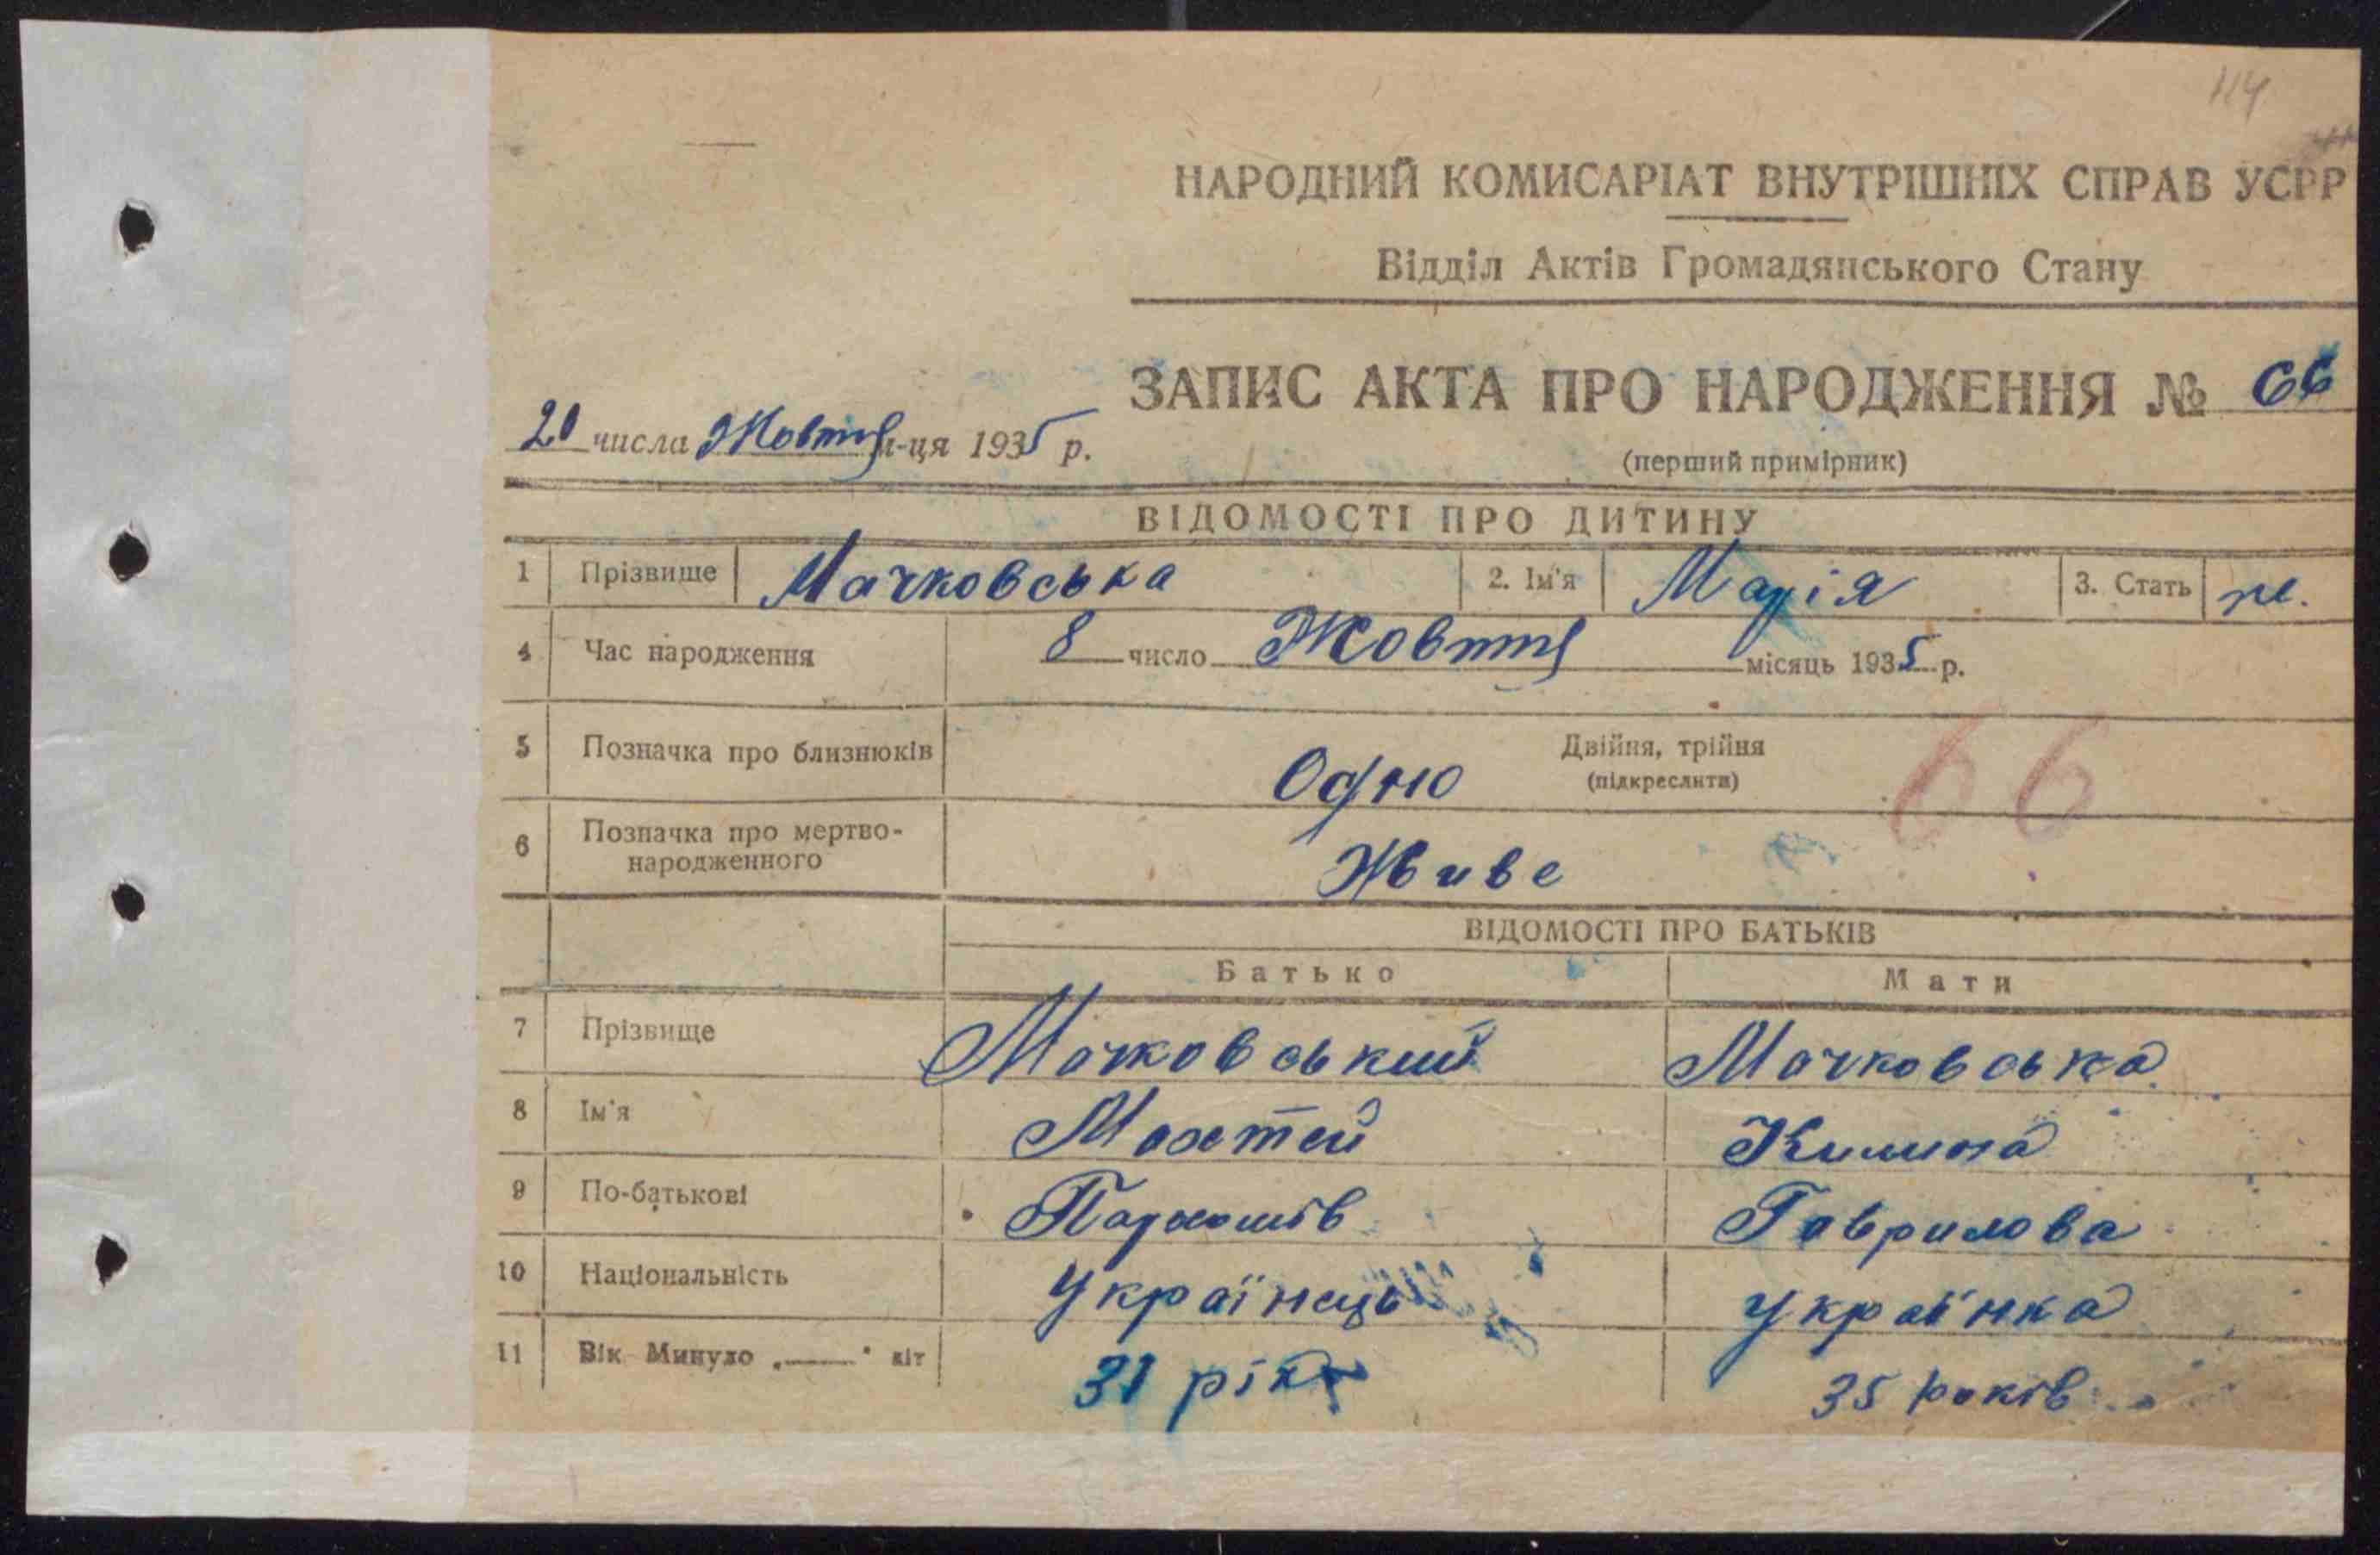 114
НАРОДНИЙ КОМИСАРІАТ ВНУТРІШНІХ СПРАВ УСРР
Відділ Актів Громадянського Стану
ЗАПИС АКТА ПРО НАРОДЖЕННЯ № 66
20 числа Жовтня м-ця 1935 р.
(перший примірник)
ВІДОМОСТІ ПРО ДИТИНУ
1 Прізвище Мачковська 2. Ім'я Марія 3. Стать ж.
4 Час народження 8 число Жовтня місяць 1935 р.
5 Позначка про близнюків Одно Двійня, трійня
(підкреслити)
66
6 Позначка про мертво-
народженного Живе
ВІДОМОСТІ ПРО БАТЬКІВ
Батько Мати
7 Прізвище Мачковський Мачковська
8 Ім'я Мохтей Килина
9 По-батькові Пархомів Гаврилова
10 Національність Українець Українка
11 Вік Минуло „—“ літ 31 рік 35 років